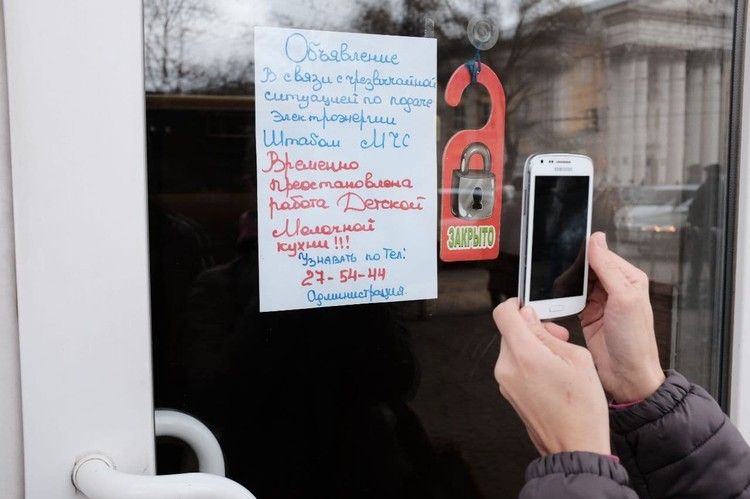 Объявление
В связи с чрезвычайной
ситуацией по подаче
Электроэнергии
Штабом МЧС
Временно
преостановлена
работа Детской
Молочной
кухни!!!
Узнавать по Тел:
27-54-44
Администрация.
ЗАКРЫТО
SAMSUNG